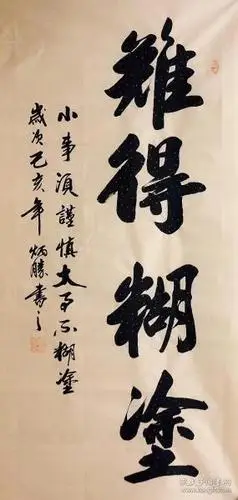 難得糊塗
小事須謹慎大事不糊塗
歲次己亥年炳勝書之